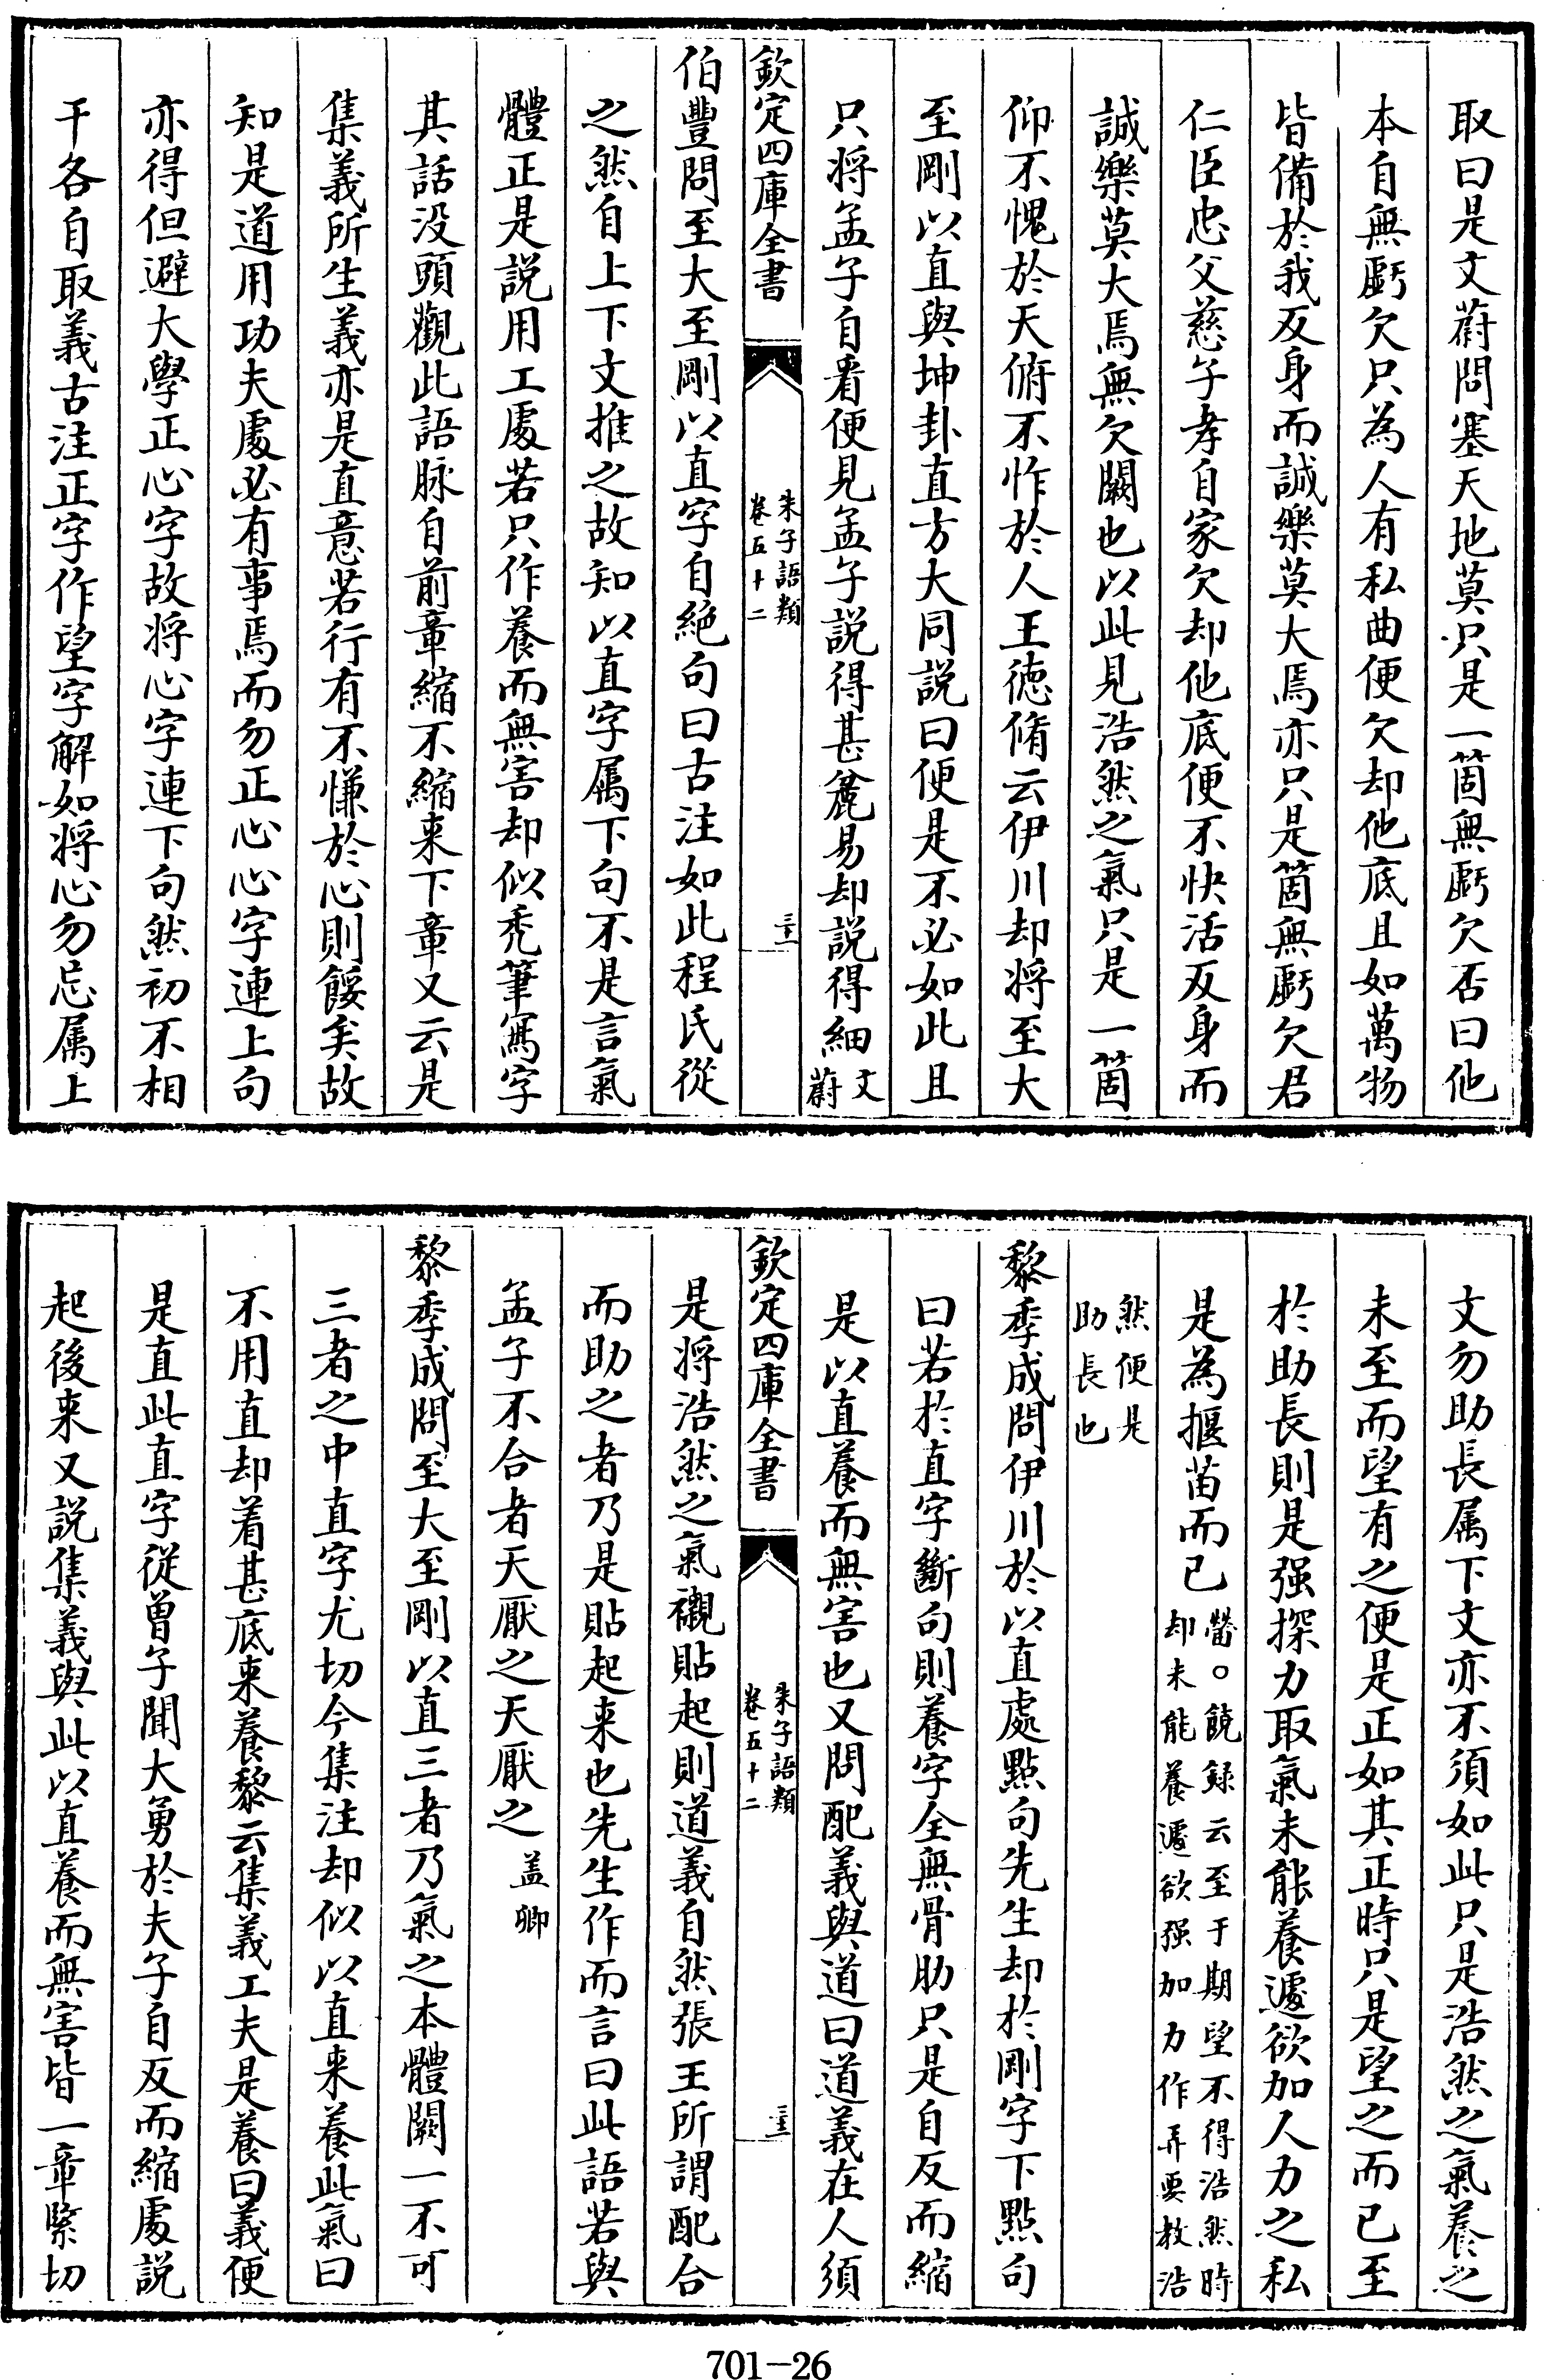 取曰是文蔚問塞天地莫只是一箇無虧欠否曰他
本自無虧欠只為人有私曲便欠却他底且如萬物
皆備於我反身而誠樂莫大焉亦只是箇無虧欠君
仁臣忠父慈子孝自家欠却他底便不快活反身而
誠樂莫大焉無欠闕也以此見浩然之氣只是一箇
仰不愧於天俯不怍於人王徳脩云伊川却将至大
至剛以直與坤卦直方大同説曰便是不必如此且
只将孟子自看便見孟子説得甚麄易却説得細文蔚
欽定四庫全書
朱子語類
卷五十二
伯豐問至大至剛以直字自絶句曰古注如此程氏從
之然自上下文推之故知以直字属下句不是言氣
體正是説用工處若只作養而無害却似秃筆寫字
其話没頭觀此語脉自前章縮不縮来下章又云是
集義所生義亦是直意若行有不慊於心則餒矣故
知是道用功夫處必有事焉而勿正心心字連上句
亦得但避大學正心字故将心字連下句然初不相
干各自取義古注正字作望字解如将心勿忘属上
文勿助長属下文亦不須如此只是浩然之氣養之
未至而望有之便是正如其正時只是望之而已至
於助長則是强探力取氣未能養遽欲加人力之私
是為揠苗而已㽦○饒録云至于期望不得浩然時
却未能養遽欲强加力作弄要教浩
然便是
助長也
黎季成問伊川於以直處點句先生却於剛字下點句
曰若於直字斷句則養字全無骨肋只是自反而縮
是以直養而無害也又問配義與道曰道義在人須
欽定四庫全書
朱子語類
卷五十二
是将浩然之氣襯貼起則道義自然張王所謂配合
而助之者乃是貼起来也先生作而言曰此語若與
孟子不合者天厭之天厭之盖卿
黎季成問至大至剛以直三者乃氣之本體闕一不可
三者之中直字尤切今集注却似以直来養此氣曰
不用直却着甚底来養黎云集義工夫是養曰義便
是直此直字從曽子聞大勇於夫子自反而縮處説
起後来又説集義與此以直養而無害皆一章緊切
701-26